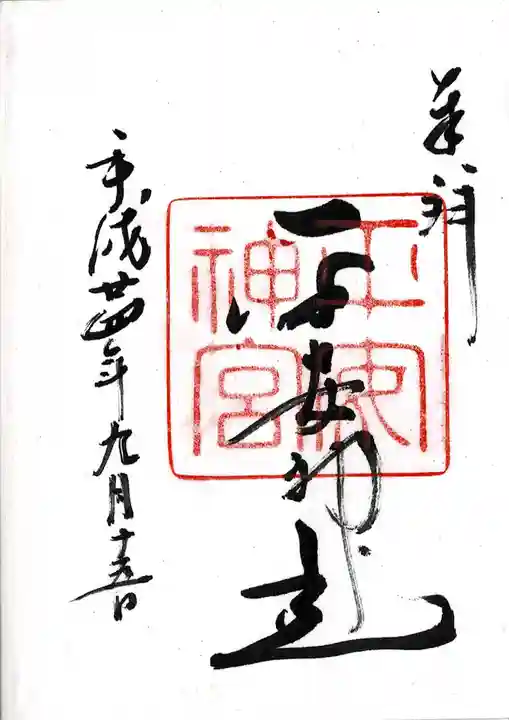 奉拝
平安神宮
平成廿四年九月十五日
神宮